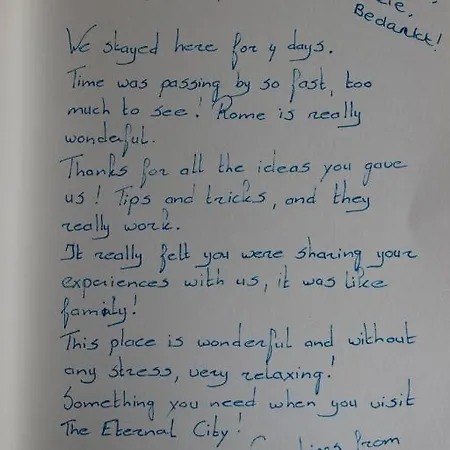 Bedankt!
We stayed here for 4 days.
Time was passing by so fast, too
much to see! Rome is really
wonderful.
Thanks for all the ideas you gave
us! Tips and tricks, and they
really work.
It really felt you were sharing your
experiences with us, it was like
family!
This place is wonderful and without
any stress, very relaxing!
Something you need when you visit
The Eternal City!
from